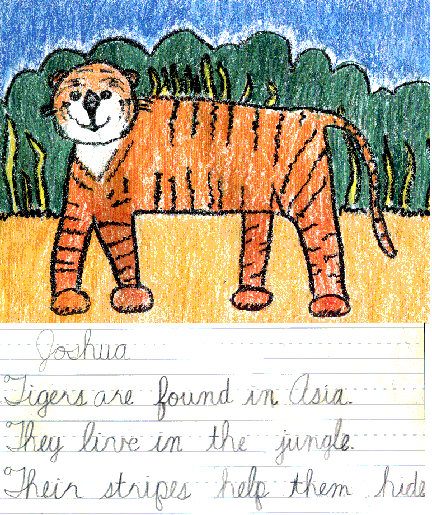 Joshua
Tigers are found in Asia.
They live in the jungle.
Their stripes help them hide